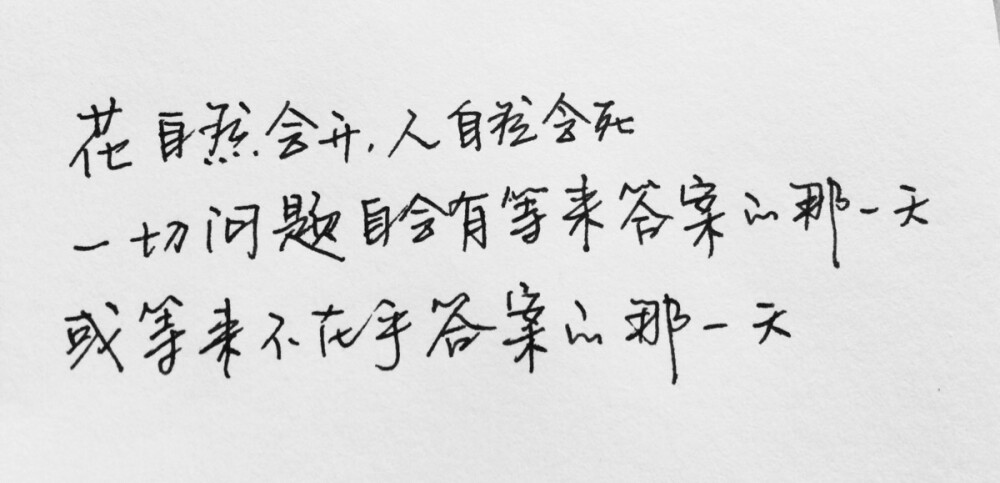 花自然会开,人自然会死
一切问题自会有等来答案的那一天
或等来不在乎答案的那一天